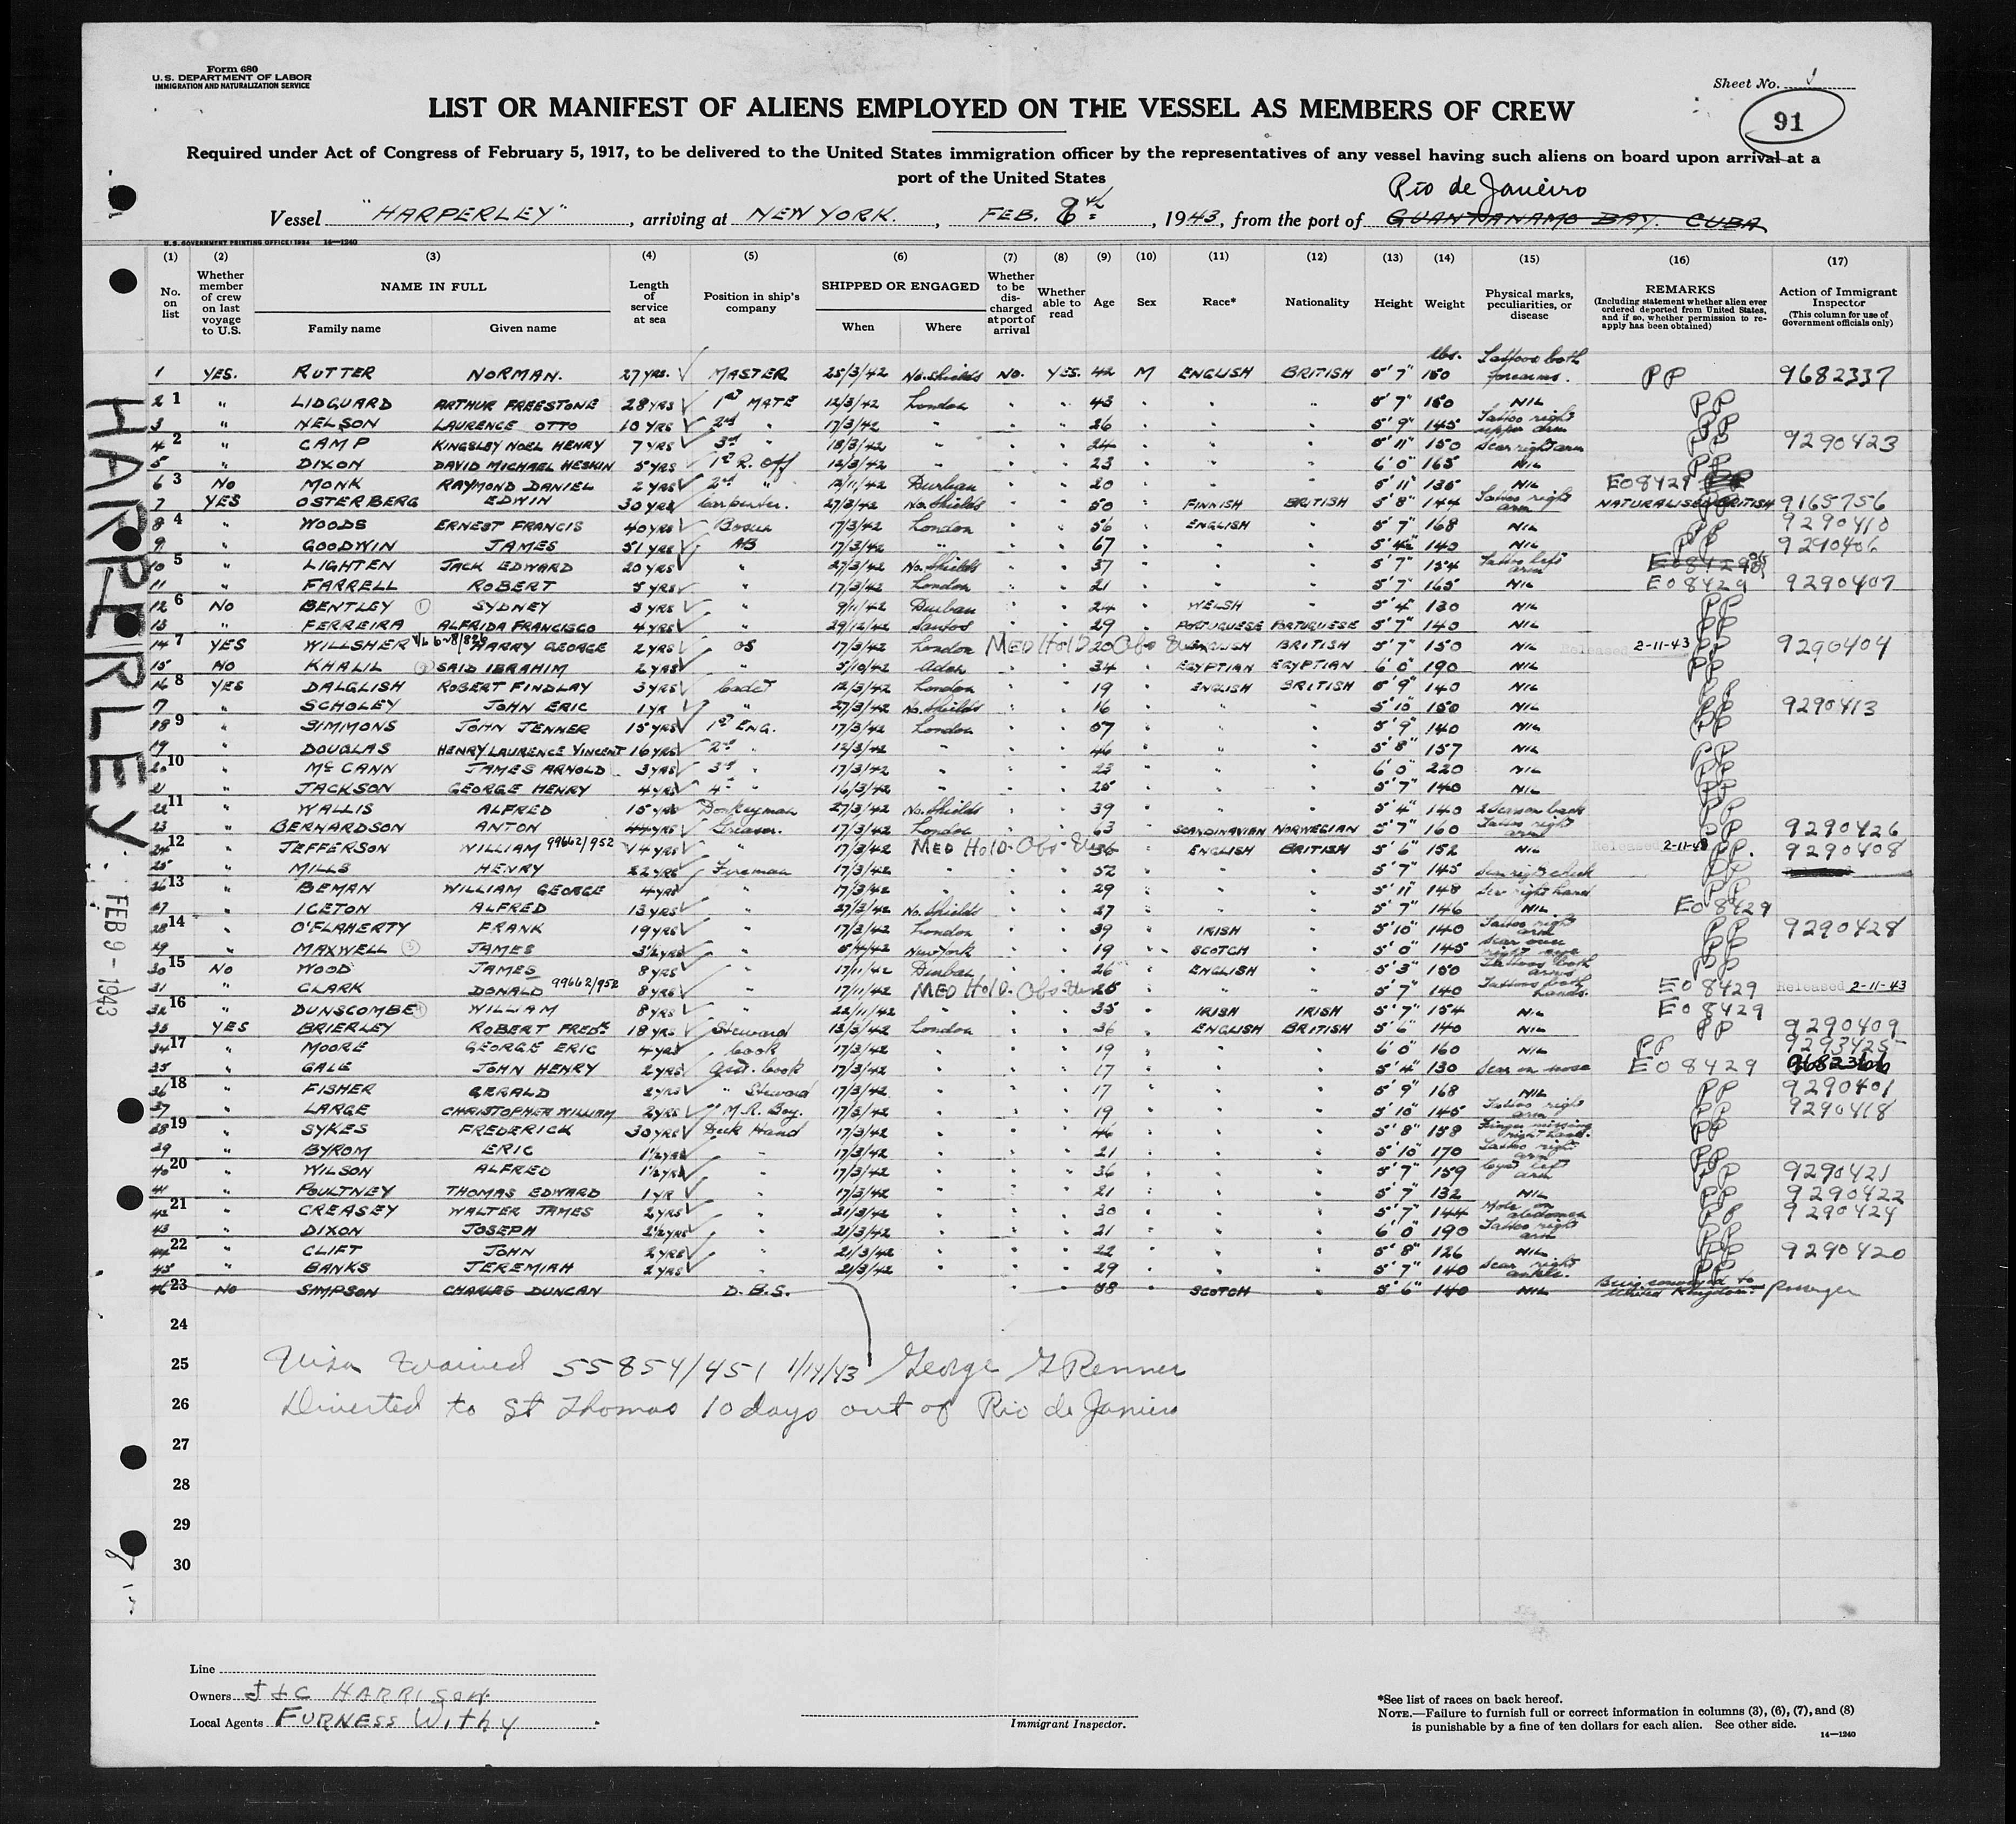 Form 680
U. S. DEPARTMENT OF LABOR
IMMIGRATION AND NATURALIZATION SERVICE
Sheet No.
91
LIST OR MANIFEST OF ALIENS EMPLOYED ON THE VESSEL AS MEMBERS OF CREW
Required under Act of Congress of February 5, 1917, to be delivered to the United States immigration officer by the representatives of any vessel having such aliens on board upon arrival at a
port of the United States
Rio de Janeiro
Vessel "HARPERLEY", arriving at NEW YORK., FEB. 8th, 1943, from the port of GUANTANAMO BAY. CUBA
U. S. GOVERNMENT PRINTING OFFICE: 1934 14—1240
(1) (2) (3) (4) (5) (6) (7) (8) (9) (10) (11) (12) (13) (14) (15) (16) (17)
No. on list
Whether member of crew on last voyage to U.S.
NAME IN FULL
Family name Given name
Length of service at sea
Position in ship's company
SHIPPED OR ENGAGED
When Where
Whether to be discharged at port of arrival
Whether able to read
Age
Sex
Race*
Nationality
Height
Weight
Physical marks, peculiarities, or disease
REMARKS
(Including statement whether alien ever ordered deported from United States, and if so, whether permission to reapply has been obtained)
Action of Immigrant Inspector
(This column for use of Government officials only)
1 YES. RUTTER NORMAN. 27 YRS. MASTER 25/3/42 No. Shields NO. YES. 42 M ENGLISH BRITISH 5' 7" lbs. 150 Tattoos both forearms. PP 9682337
2 " LIDGUARD ARTHUR FREESTONE 28 YRS 1st MATE 12/3/42 London " " 43 " " " 5' 7" 150 NIL PP
3 " NELSON LAURENCE OTTO 10 YRS 2nd " 17/3/42 " " " 26 " " " 5' 9" 145 Tattoo right upper arm PP
4 " CAMP KINGSLEY NOEL HENRY 7 YRS 3rd " 18/3/42 " " " 24 " " " 5' 11" 150 Scar right arm PP 9290423
5 " DIXON DAVID MICHAEL HESKIN 5 YRS 1st R. Off 12/3/42 " " " 23 " " " 6' 0" 165 NIL PP
6 NO MONK RAYMOND DANIEL 2 YRS 2nd " 12/11/42 Durban " " 20 " " " 5' 11" 135 NIL EO8429
7 YES OSTERBERG EDWIN 30 YRS Carpenter. 27/3/42 No. Shields " " 50 " FINNISH BRITISH 5' 8" 144 Tattoo right arm NATURALISED BRITISH 9165756
8 " WOODS ERNEST FRANCIS 40 YRS Bosun 17/3/42 London " " 56 " ENGLISH " 5' 7" 168 NIL PP 9290410
9 " GOODWIN JAMES 51 YRS AB 17/3/42 " " " 67 " " " 140 NIL PP 9290406
10 " LIGHTEN JACK EDWARD 20 YRS " 27/3/42 No. Shields " " 37 " " " 5' 7" 154 Tattoo left arm EO8429
11 " FARRELL ROBERT 5 YRS " 17/3/42 London " " 21 " " " 5' 7" 165 NIL EO8429 9290407
12 NO BENTLEY SYDNEY 3 YRS " 9/11/42 Durban " " 24 " WELSH " 5' 4" 130 NIL PP
13 " FERREIRA ALFRIDA FRANCISCO 4 YRS " 29/12/42 Santos " " 29 " PORTUGUESE PORTUGUESE 5' 7" 140 NIL PP
14 YES WILLSHER HARRY GEORGE 2 YRS OS 17/3/42 London MED HOLD 20 ENGLISH BRITISH 5' 7" 150 NIL Released 2-11-43 PP 9290404
15 NO KHALIL SAID IBRAHIM 2 YRS " 5/10/42 Aden " " 34 " EGYPTIAN EGYPTIAN 6' 0" 190 NIL PP
16 YES DALGLISH ROBERT FINDLAY 3 YRS Cadet 12/3/42 London " " 19 " ENGLISH BRITISH 5' 9" 140 NIL PP
17 " SCHOLEY JOHN ERIC 1 YR " 27/3/42 No. Shields " " 16 " " " 5' 10" 150 NIL PP 9290413
18 " SIMMONS JOHN JENNER 15 YRS 1st ENG. 17/3/42 London " " 57 " " " 5' 9" 140 NIL PP
19 " DOUGLAS HENRY LAURENCE VINCENT 16 YRS 2nd " 12/3/42 " " " 46 " " " 5' 8" 157 NIL PP
20 " McCANN JAMES ARNOLD 3 YRS 3rd " 17/3/42 " " " 23 " " " 6' 0" 220 NIL PP
21 " JACKSON GEORGE HENRY 4 YRS 4th " 16/3/42 " " " 25 " " " 5' 7" 140 NIL PP
22 " WALLIS ALFRED 15 YRS Donkeyman 27/3/42 No. Shields " " 39 " " " 5' 4" 140 2 Scars on back PP
23 " BERNARDSON ANTON 44 YRS Greaser. 17/3/42 London " " 63 " SCANDINAVIAN NORWEGIAN 5' 7" 160 Tattoo right arm PP 9290426
24 " JEFFERSON WILLIAM 99662/952 14 YRS " 17/3/42 MED HOLD. 36 " ENGLISH BRITISH 5' 6" 152 NIL Released 2-11-43 PP. 9290408
25 " MILLS HENRY 22 YRS Fireman 17/3/42 " " " 52 " " " 5' 7" 145 Scar right cheek PP
26 " BEMAN WILLIAM GEORGE 4 YRS " 17/3/42 " " " 29 " " " 5' 11" 148 Scar right hand PP
27 " ICETON ALFRED 13 YRS " 27/3/42 No. Shields " " 27 " " " 5' 7" 146 NIL EO8429
28 " O'FLAHERTY FRANK 19 YRS " 17/3/42 London " " 39 " IRISH " 5' 10" 140 Tattoo right arm PP 9290428
29 " MAXWELL JAMES 3½ YRS " 5/4/42 New York " " 19 " SCOTCH " 5' 0" 145 Scar over right eye PP
30 NO WOOD JAMES 8 YRS " 17/11/42 Durban " " 26 " ENGLISH " 5' 3" 150 Tattoos both arms PP
31 " CLARK DONALD 99662/952 8 YRS " 17/11/42 MED HOLD. 25 " " " 5' 7" 140 Tattoos both hands. EO8429 Released 2-11-43
32 " DUNSCOMBE WILLIAM 8 YRS " 22/11/42 " " " 35 " IRISH IRISH 5' 7" 154 NIL EO8429
33 YES BRIERLEY ROBERT FREDk 18 YRS Steward 13/3/42 London " " 36 " ENGLISH BRITISH 5' 6" 140 NIL PP 9290409
34 " MOORE GEORGE ERIC 4 YRS Cook 17/3/42 " " " 19 " " " 6' 0" 160 NIL PP 9293425
35 " GALE JOHN HENRY 2 YRS Asst. Cook 17/3/42 " " " 17 " " " 5' 4" 130 Scar on nose EO8429
36 " FISHER GERALD 2 YRS " Steward 17/3/42 " " " 17 " " " 5' 9" 168 NIL PP 9290401
37 " LARGE CHRISTOPHER WILLIAM 2 YRS " M.R. Boy. 17/3/42 " " " 19 " " " 5' 10" 145 Tattoo right arm PP 9290418
38 " SYKES FREDERICK 30 YRS Deck Hand 17/3/42 " " " 46 " " " 5' 8" 158 Finger missing right hand. PP
39 " BYROM ERIC 1½ YRS " 17/3/42 " " " 21 " " " 5' 10" 170 Tattoo right arm PP
40 " WILSON ALFRED 1½ YRS " 17/3/42 " " " 36 " " " 5' 7" 159 left arm PP 9290421
41 " POULTNEY THOMAS EDWARD 1 YR " 17/3/42 " " " 21 " " " 5' 7" 132 NIL PP 9290422
42 " CREASEY WALTER JAMES 2 YRS " 21/3/42 " " " 30 " " " 5' 7" 144 Mole on abdomen PP 9290424
43 " DIXON JOSEPH 2½ YRS " 21/3/42 " " " 21 " " " 6' 0" 190 Tattoo right arm PP
44 " CLIFT JOHN 2 YRS " 21/3/42 " " " 22 " " " 5' 8" 126 NIL PP 9290420
45 " BANKS JEREMIAH 2 YRS " 21/3/42 " " " 29 " " " 5' 7" 140 Scar right ankle. PP
46 NO SIMPSON CHARLES DUNCAN D.B.S. " " 58 SCOTCH " 5' 6" 140 NIL Being conveyed to United Kingdom. Passenger
24
25 Visa Waived 55854/451 1/14/43 George G Renner
26 Diverted to St Thomas 10 days out of Rio de Janiero
27
28
29
30
HARPERLEY
FEB 9 - 1943
Line
Owners J & C HARRISON.
Local Agents FURNESS WITHY
Immigrant Inspector.
*See list of races on back hereof.
NOTE.—Failure to furnish full or correct information in columns (3), (6), (7), and (8)
is punishable by a fine of ten dollars for each alien. See other side.
14—1240